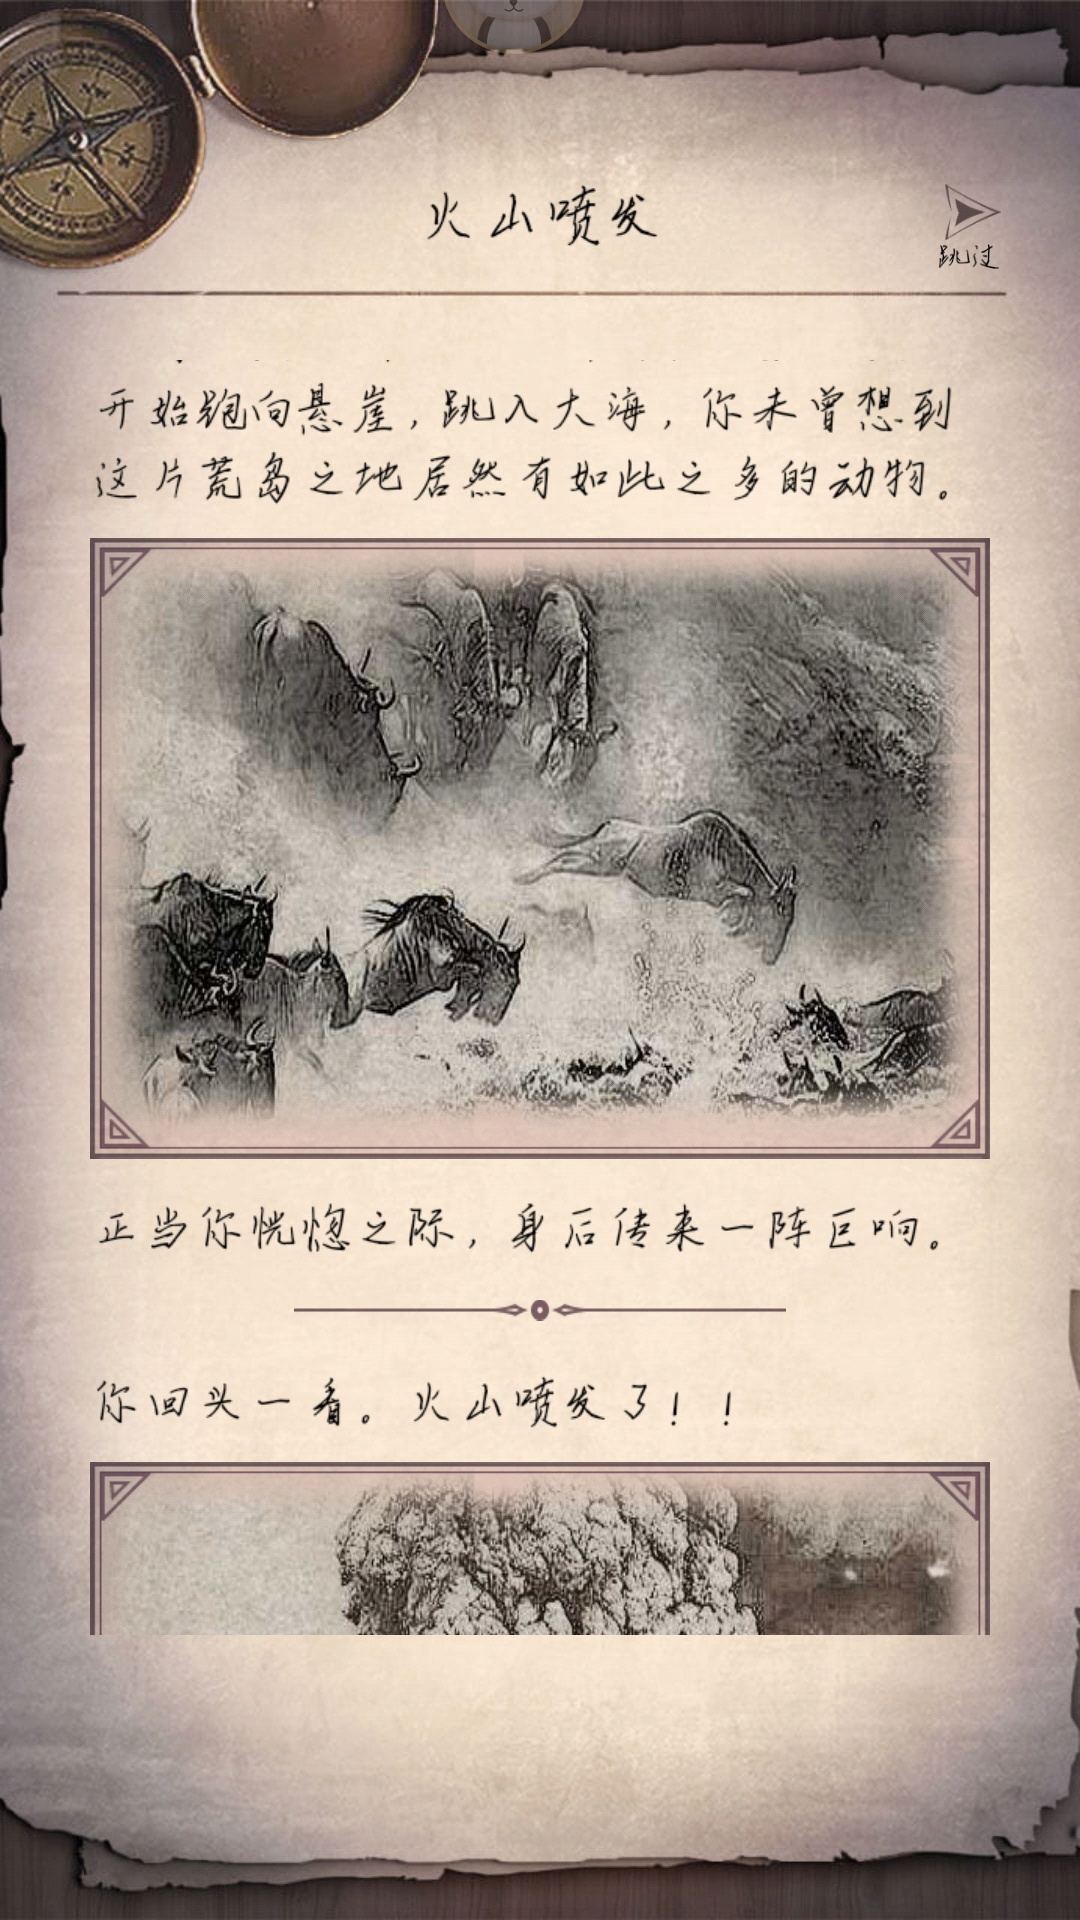 火山喷发
跳过
开始跑向悬崖，跳入大海，你未曾想到
这片荒岛之地居然有如此之多的动物。
正当你恍惚之际，身后传来一阵巨响。
你回头一看。火山喷发了！！